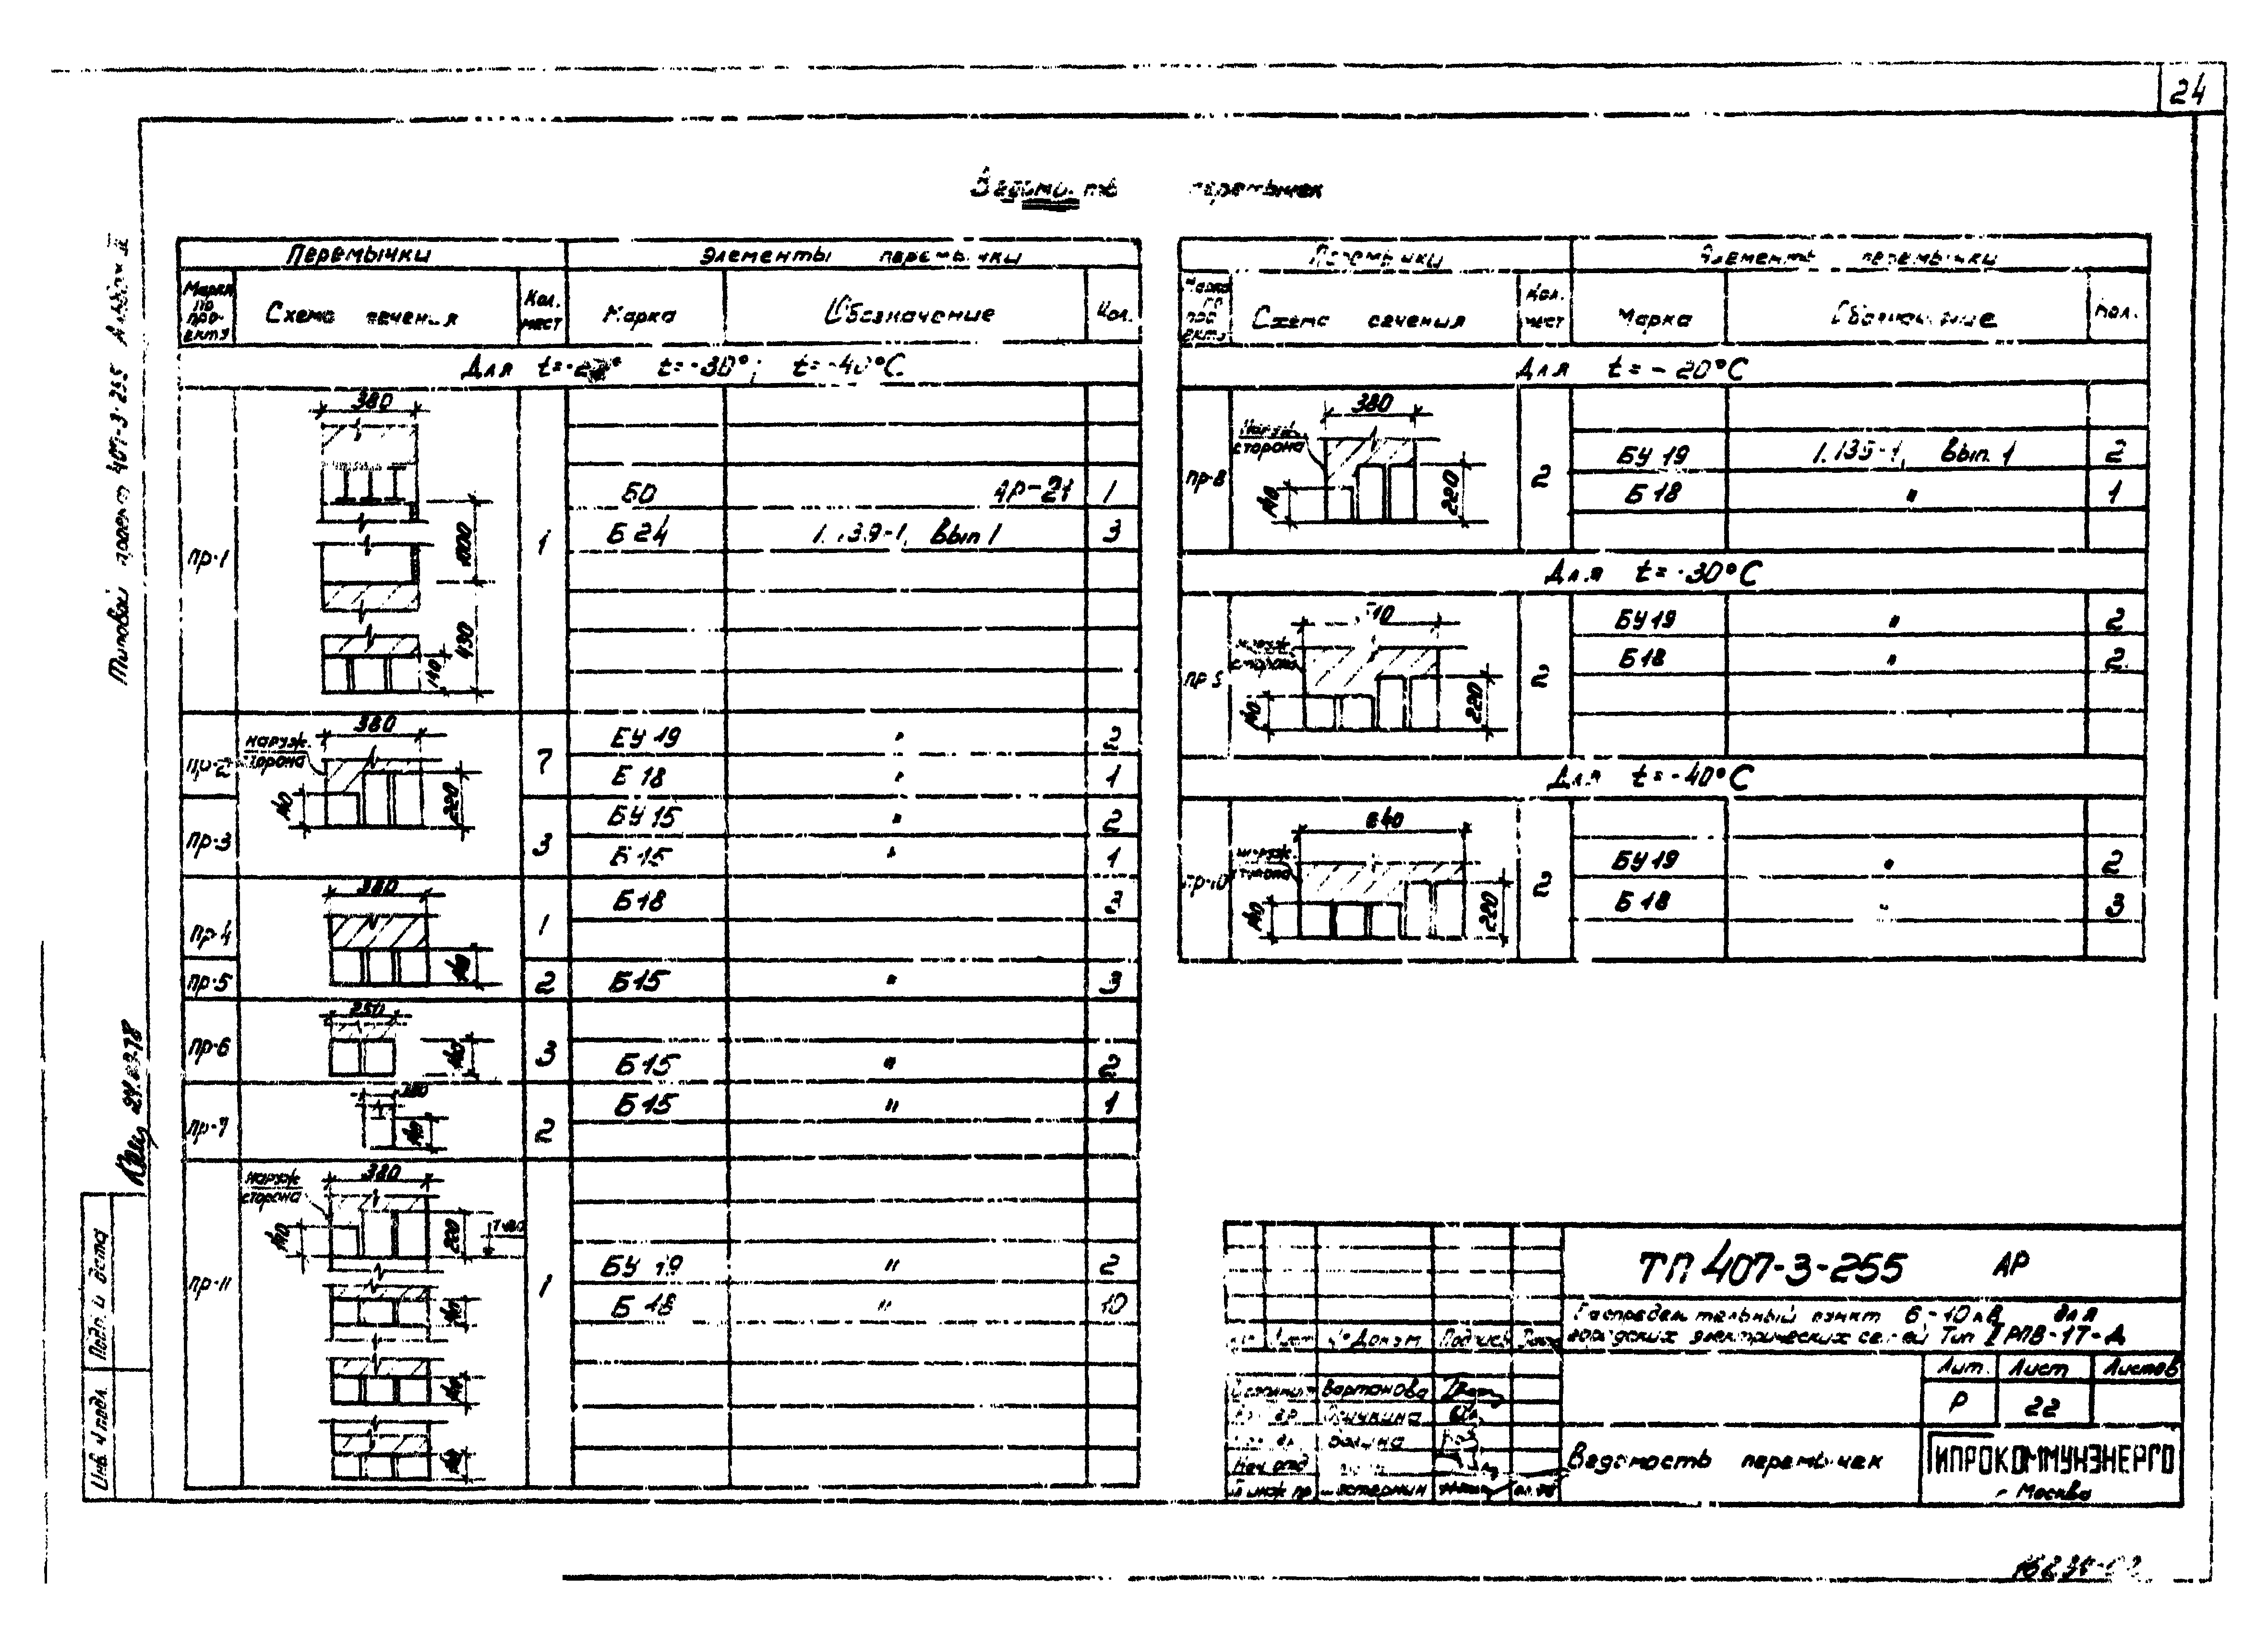 24
перемычек
Перемычки
Элементы перемычки
Марка по про-екту
Схема сечения
Кол. мест
Марка
Обозначение
Кол.
Для t=-30°; t=-40°С
Пр-1
380
1000
490
140
1
БО АР-21 1
Б 24 1.139-1, Вып 1 3
Пр-2
наруж. сторона
380
140
220
7
БУ 19 " 2
Б 18 " 1
Пр-3
3
БУ 15 " 2
Б 15 " 1
Пр-4
380
140
1
Б 18 3
Пр-5
2
Б15 " 3
Пр-6
250
140
3
Б 15 " 2
Пр-7
140
2
Б 15 " 1
Пр-11
наруж сторона
380
140
220
140
140
140
1
БУ 19 " 2
Б 18 " 10
Перемычки
Элементы перемычки
Марка по про екту
Схема сечения
Кол. мест
Марка
Обозначение
Кол.
Для t=-20°С
Пр-8
наруж. сторона
380
140
220
2
БУ 19 1.139-1, Вып. 1 2
Б 18 " 1
Для t=-30°С
Пр-9
наруж сторона
510
140
220
2
БУ 19 " 2
Б 18 " 2
Для t=-40°С
Пр-10
наруж. сторона
640
140
220
2
БУ 19 " 2
Б 18 " 3
Типовой проект 407-3-255 Альбом II
24.03.78
Подп. и дата
Инв. № подл.
ТП 407-3-255 АР
Распределительный пункт 6-10 кВ для
городских электрических сетей Тип II РПВ-1Т-А
Лист № Докум. Подпись Дата
Вартанова
Нач. отд
Гл инж пр
Лит. Лист Листов
Р 22
Ведомость перемычек
ГИПРОКОММУНЭНЕРГО
г. Москва